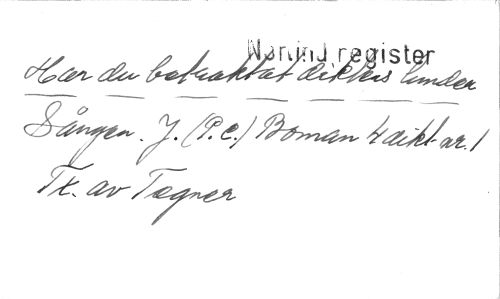 Norlind register
Har du betraktat diktens lunder
Sången. J. (P.C.) Boman 4 dikt. nr. 1
Tx. av Tegner